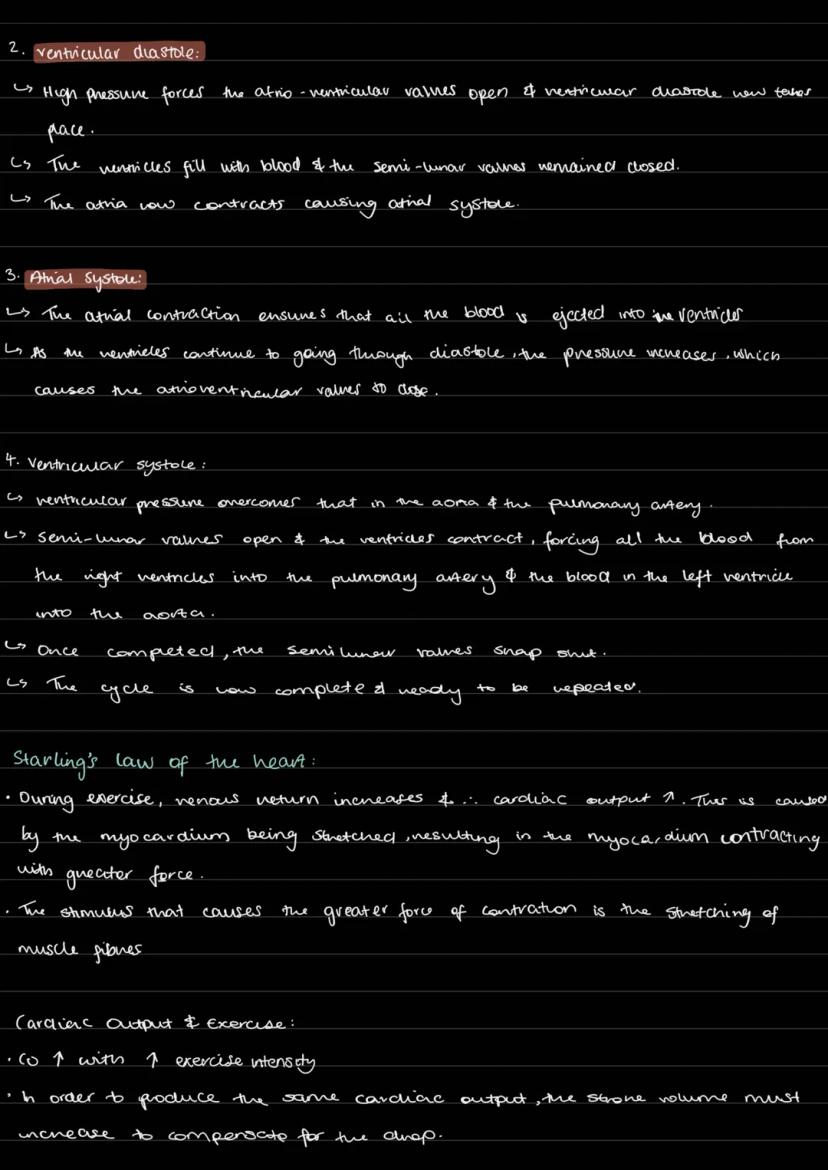 2. Ventricular diastole:
↳ High pressure forces the atrio-ventricular valves open & ventricular diastole now takes
place.
↳ The ventricles fill with blood & the semi-lunar valves remained closed.
↳ The atria now contracts causing atrial systole.
3. Atrial Systole:
↳ The atrial contraction ensures that all the blood is ejected into the ventricles
↳ As the ventricles continue to going through diastole, the pressure increases, which
causes the atrioventricular valves to close.
4. Ventricular systole:
↳ ventricular pressure overcomes that in the aorta & the pulmonary artery.
↳ Semi-lunar valves open & the ventricles contract, forcing all the blood from
the right ventricles into the pulmonary artery & the blood in the left ventricle
into the aorta.
↳ Once completed, the semilunar valves snap shut.
↳ The cycle is now complete & ready to be repeated.
Starling's law of the heart:
• During exercise, venous return increases & ∴ cardiac output ↑. This is caused
by the myocardium being stretched, resulting in the myocardium contracting
with greater force.
• The stimulus that causes the greater force of contration is the stretching of
muscle fibres
Cardiac Output & Exercise:
• CO ↑ with ↑ exercise intensity
• In order to produce the same cardiac output, the stroke volume must
increase to compensate for the drop.